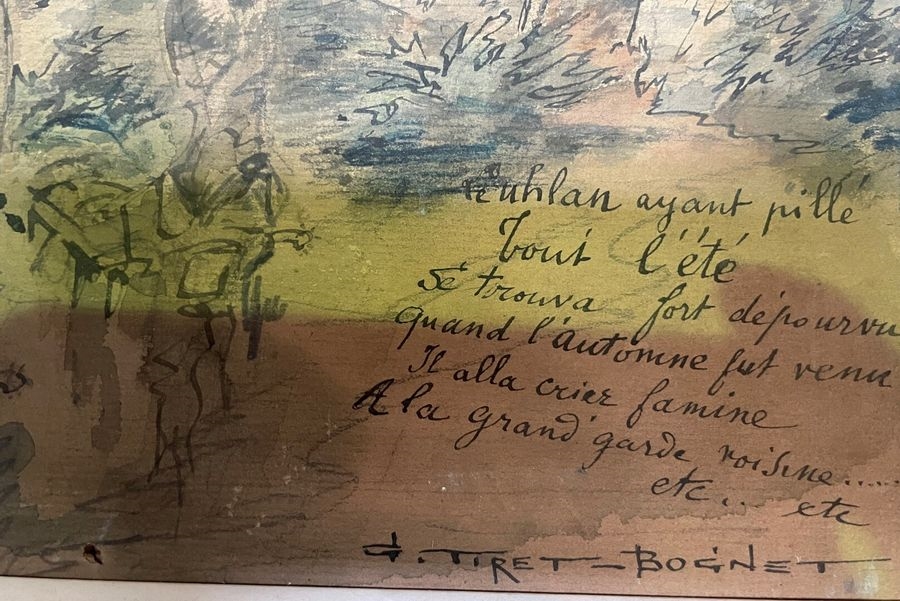 Le uhlan ayant pillé
Tout l'été
Se trouva fort dépourvu
Quand l'automne fut venu
Il alla crier famine
A la grand' garde voisine.....
etc.. etc
G. TIRET-BOGNET